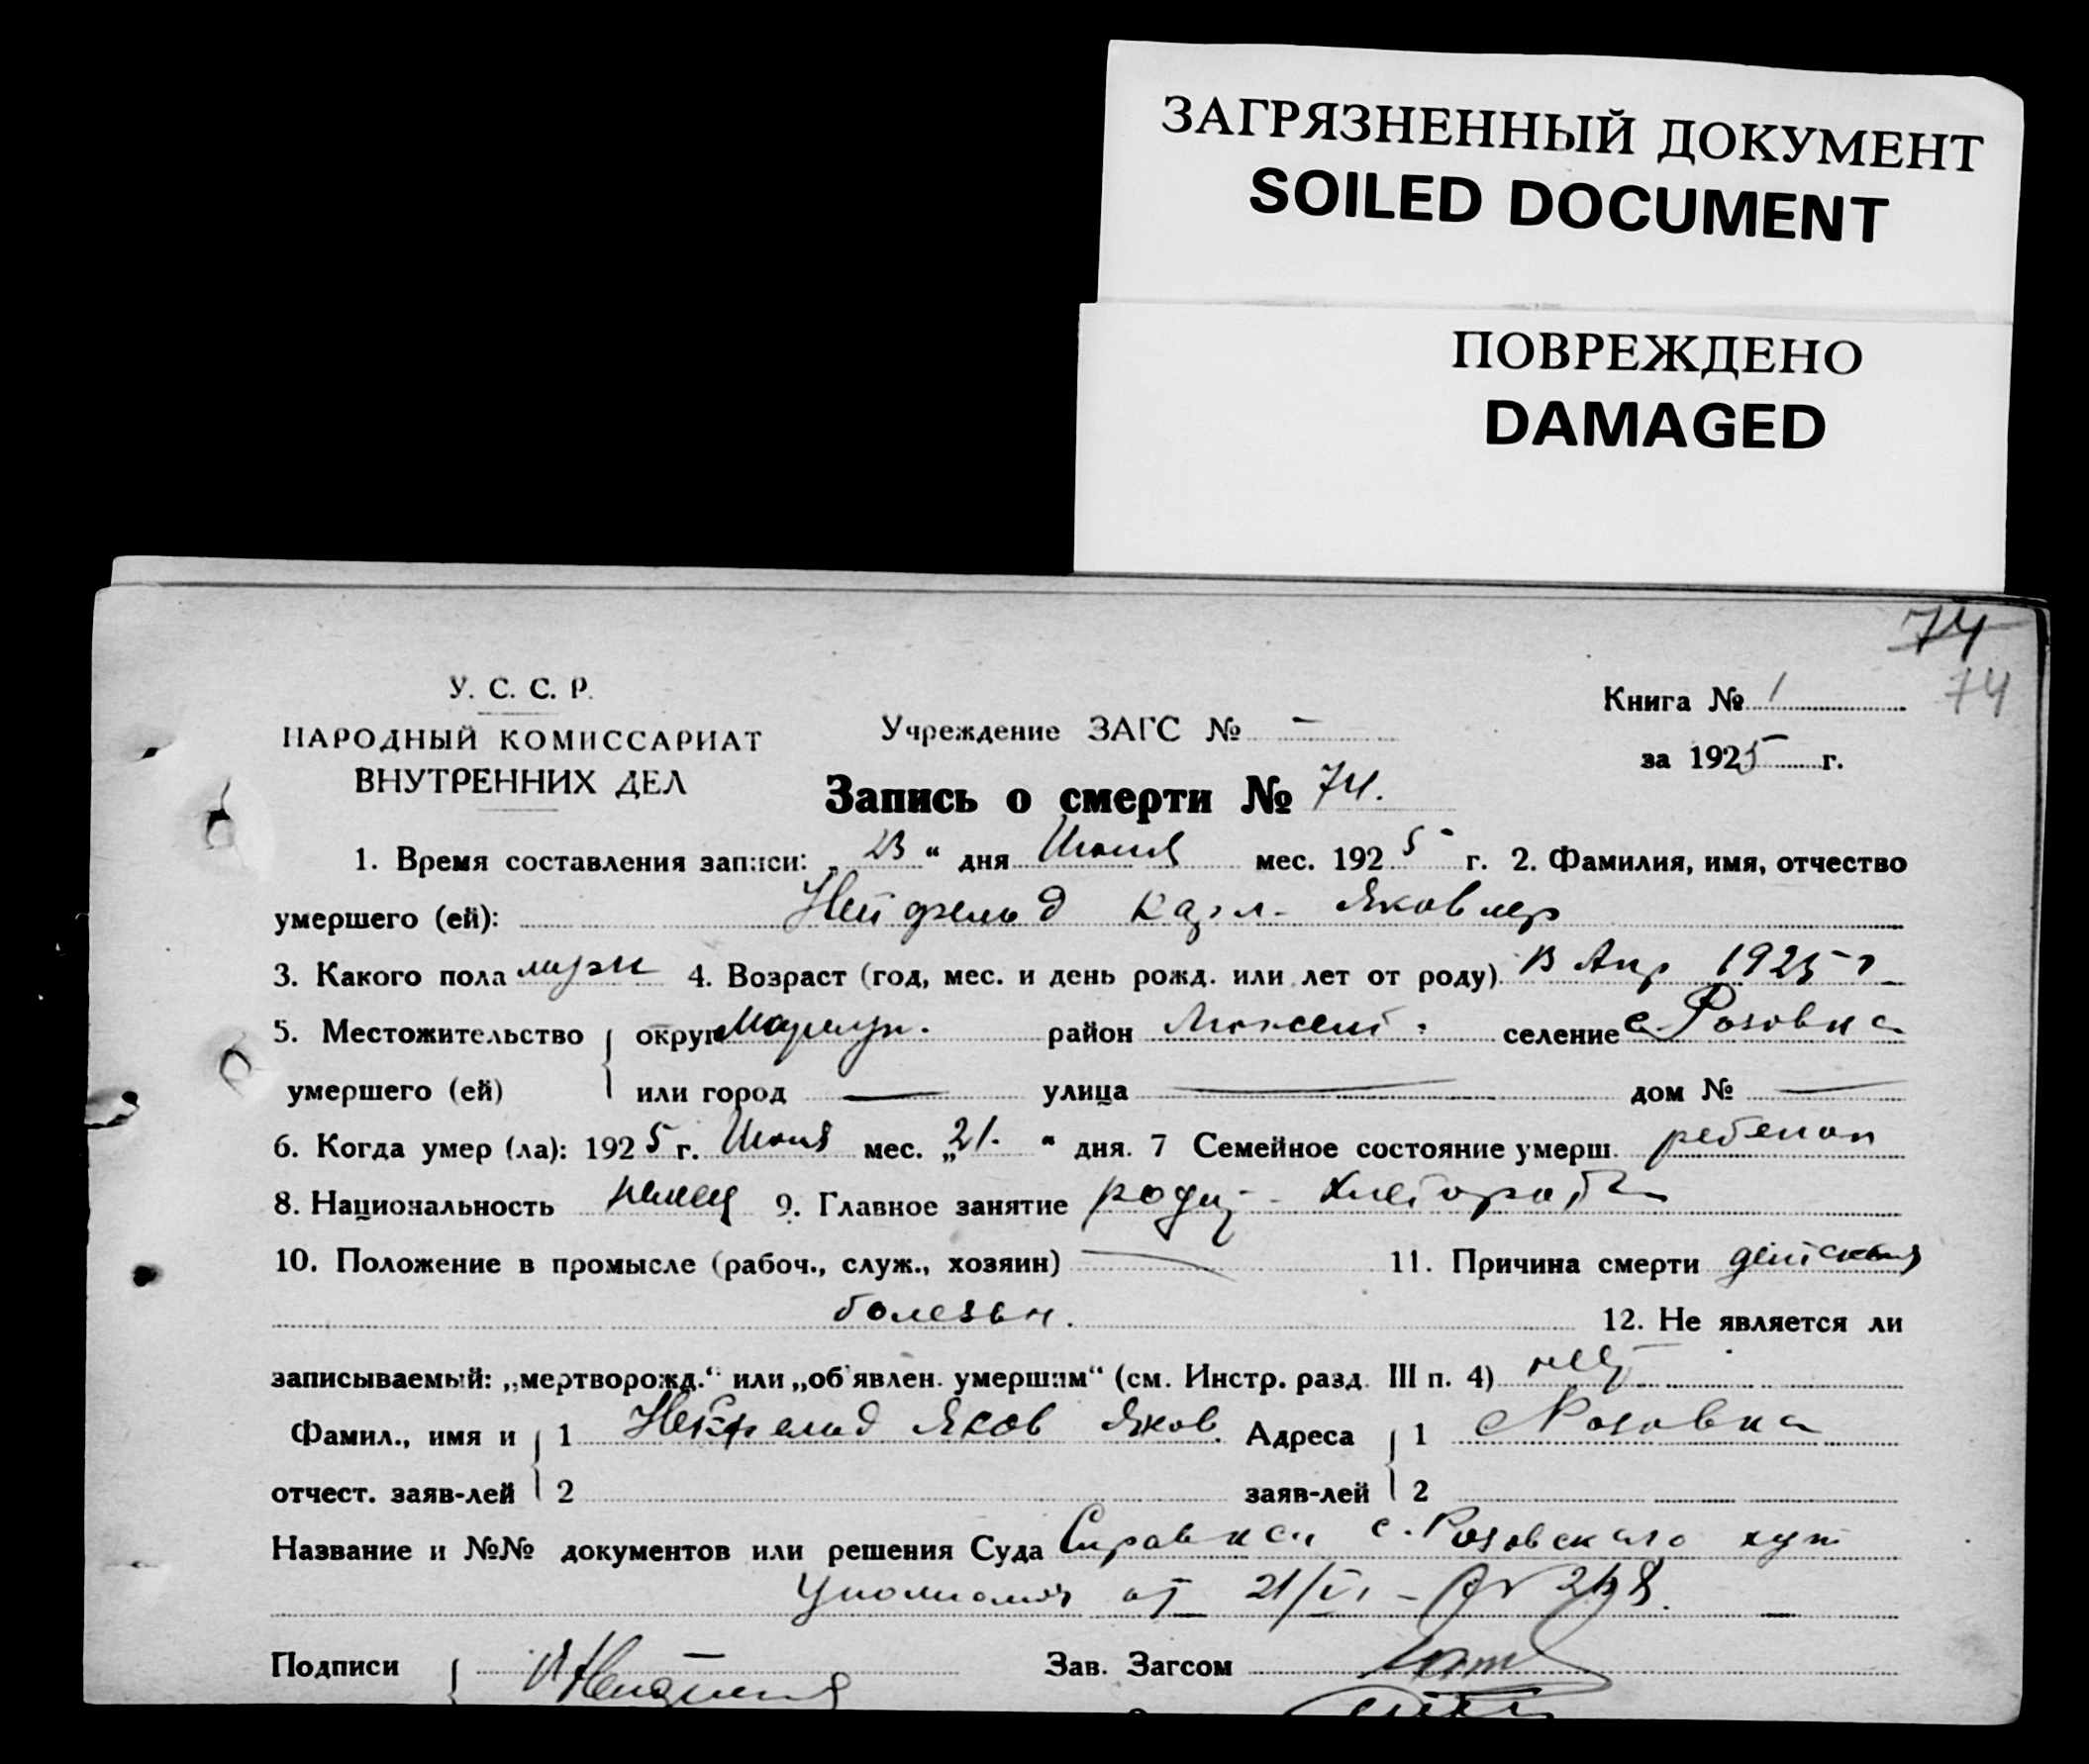 ЗАГРЯЗНЕННЫЙ ДОКУМЕНТ
SOILED DOCUMENT
ПОВРЕЖДЕНО
DAMAGED
74
74
У. С. С. Р.
НАРОДНЫЙ КОМИССАРИАТ
ВНУТРЕННИХ ДЕЛ
Учреждение ЗАГС № —
Книга № 1
за 1925 г.
Запись о смерти № 74.
1. Время составления записи: „23“ дня Июня мес. 1925 г. 2. Фамилия, имя, отчество
умершего (ей): Нейфельд Карл Яковлер
3. Какого пола мужс 4. Возраст (год, мес. и день рожд. или лет от роду) 13 Апр 1925 г
5. Местожительство округ Мариуп. район селение с. Розовка
умершего (ей) или город — улица — дом № —
6. Когда умер (ла): 1925 г. Июня мес. „21.“ дня. 7 Семейное состояние умерш. ребенок
8. Национальность немец 9. Главное занятие родит - хлебораб
10. Положение в промысле (рабоч., служ., хозяин) — 11. Причина смерти детская
болезнь.
12. Не является ли
записываемый: „мертворожд.“ или „об'явлен. умершим“ (см. Инстр. разд. III п. 4) нет
Фамил., имя и 1 Нейфельд Яков Яков. Адреса 1 с Розовка
отчест. заяв-лей 2 заяв-лей 2
Название и №№ документов или решения Суда Справка с. Розовского
от 21/VI - №
Подписи Зав. Загсом